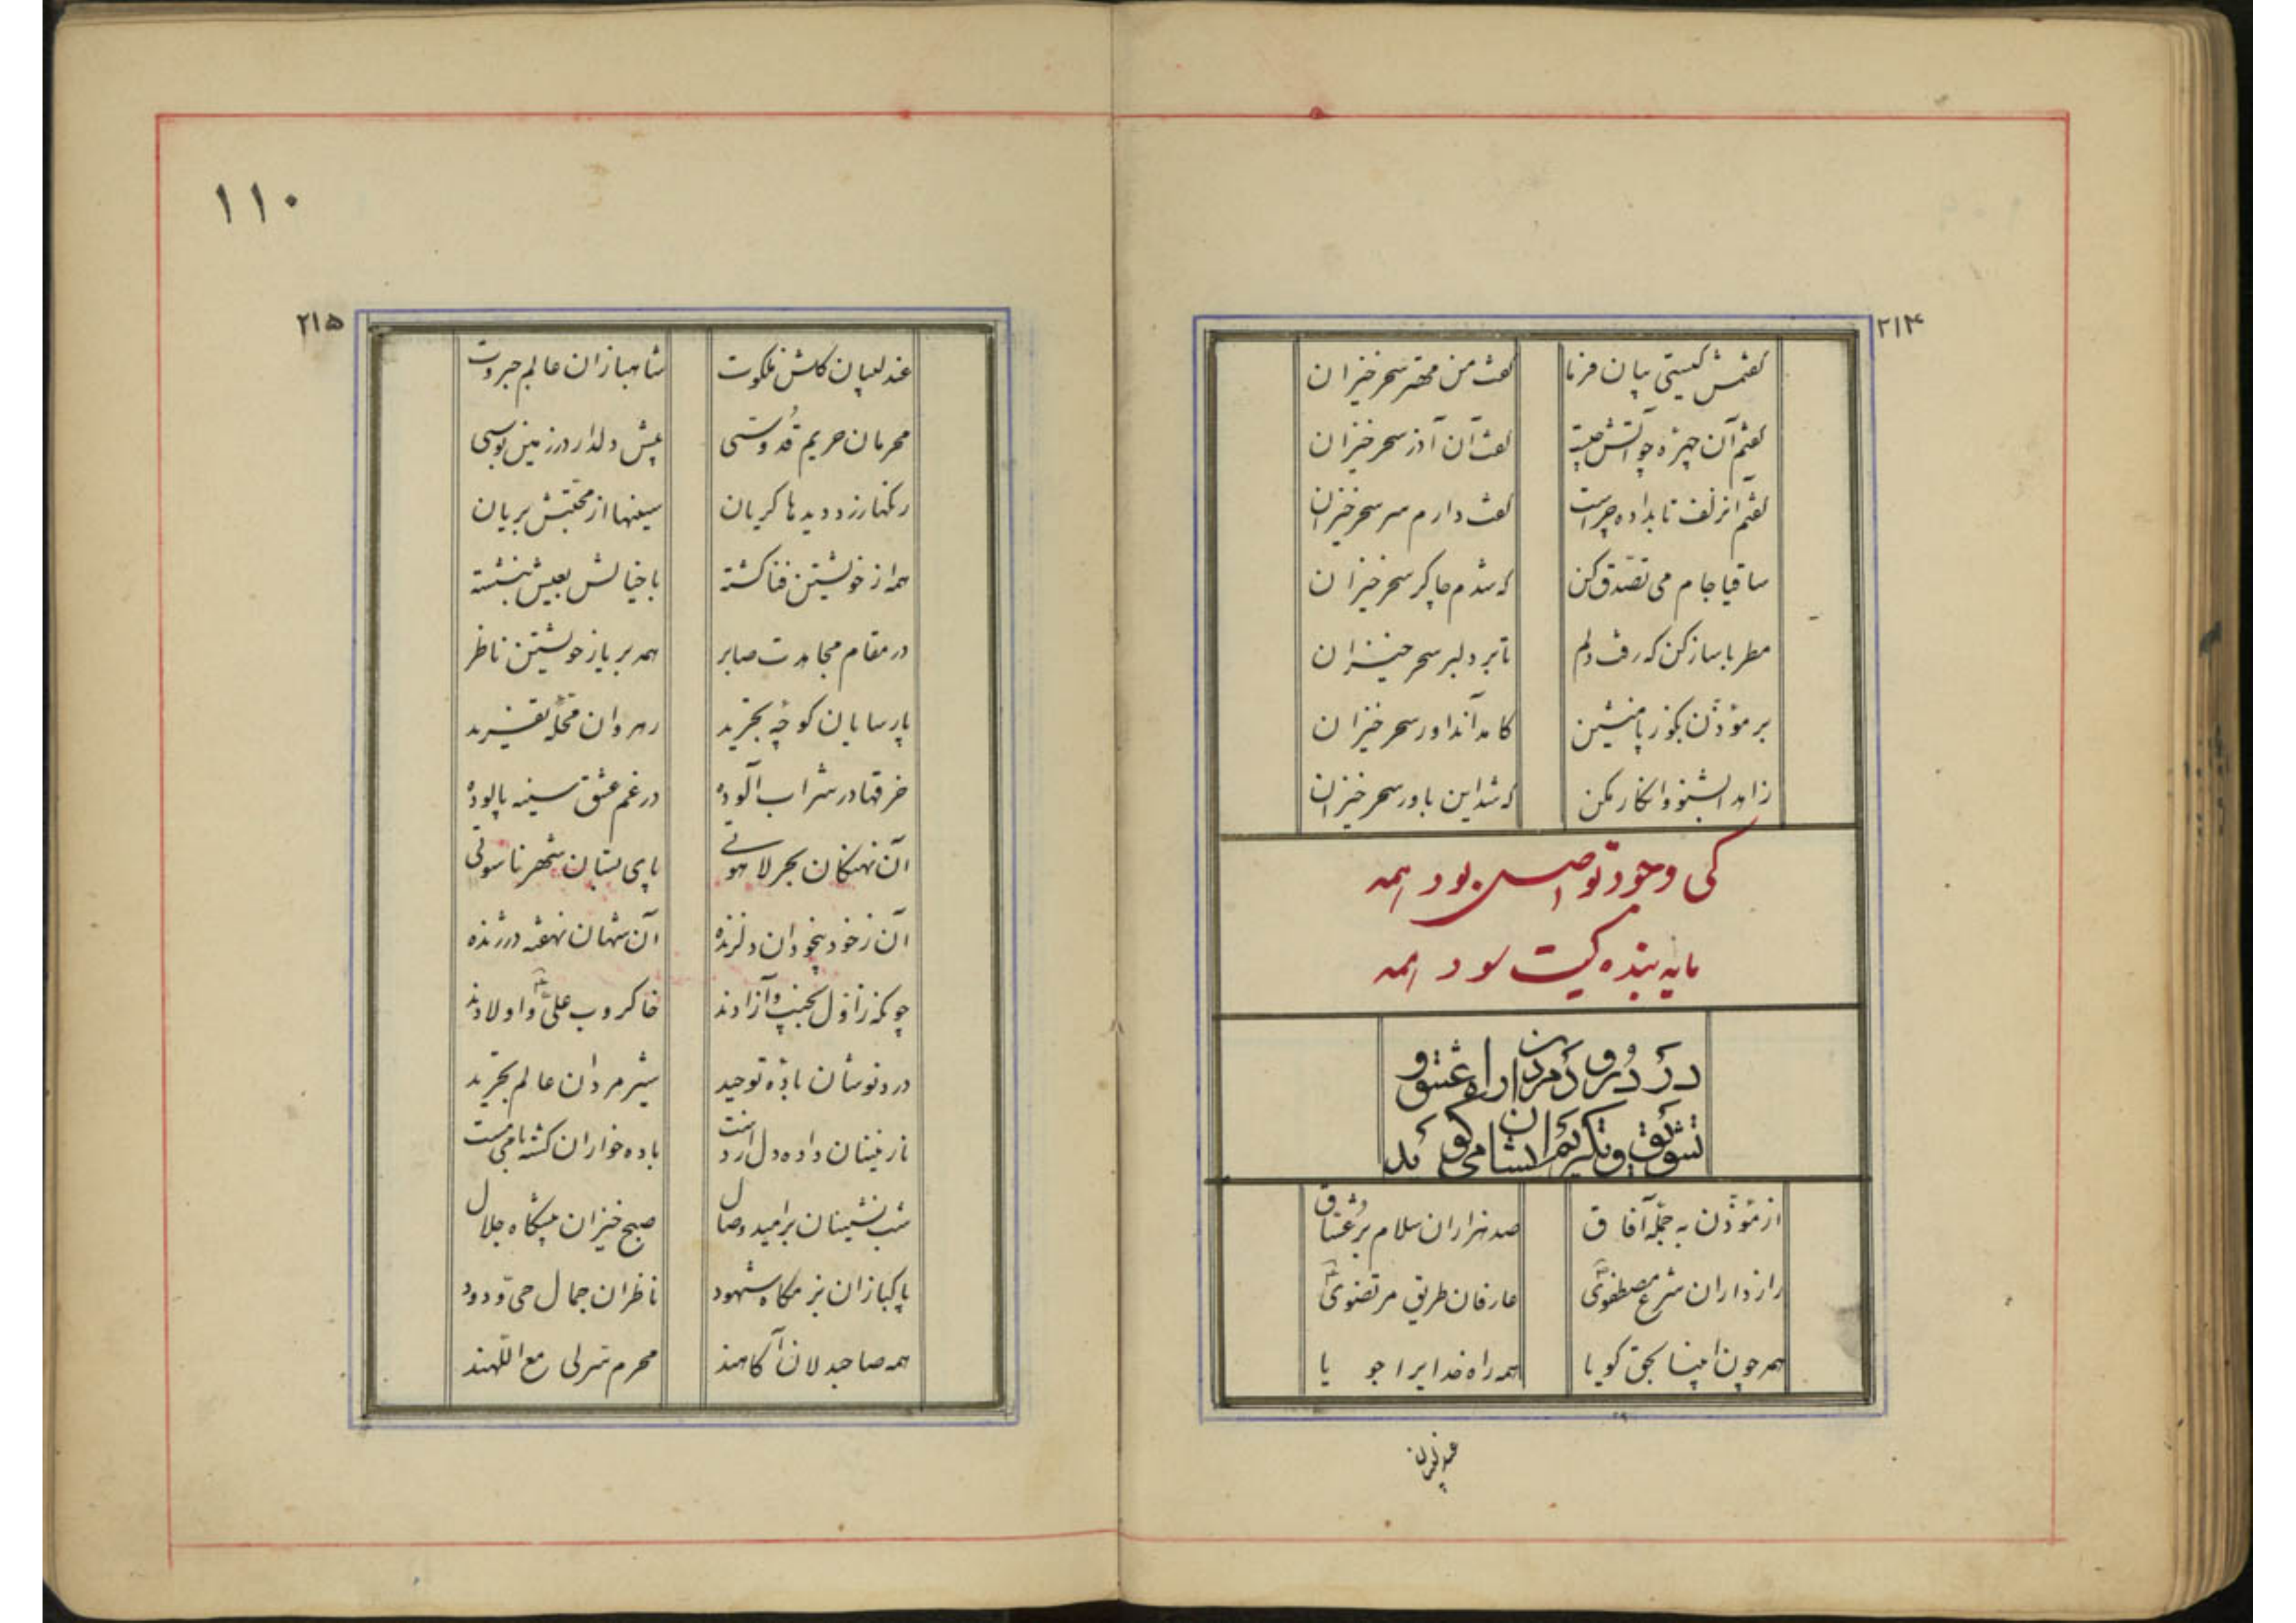 ۲۱۴
گفتمش کیستی بیان فرما گفت من مهتر سحرخیزان
گفتم آن چهره چو آتش چیست گفت آن آذر سحرخیزان
گفتم آن زلف تابداده چراست گفت دارم سر سحرخیزان
ساقیا جام می تصدّق کن که شدم چاکر سحرخیزان
مطربا ساز کن که رفت دلم تا بر دلبر سحرخیزان
بر مؤذّن بگوز پا منشین کامد آن داور سحرخیزان
زاهدا بشنو و انکار مکن که شد این باور سحرخیزان
کی وجود تو اصل بود همه
مایه بنده کیت سود همه
در درود مردان راه عشق و
تشویق و تکریم ایشان می گوید
از مؤذّن به جملهٔ آفاق صد هزاران سلام بر عشّاق
رازداران شرع مصطفوی عارفان طریق مرتضوی
همه چون انبیا بحق گویا همه راه خدایرا جویا
عندلیبان
۱۱۰
۲۱۵
عندلیبان گلشن ملکوت شاهبازان عالم جبروت
محرمان حریم قدّوسی پیش دلدار در زمین بوسی
رنگها زرد و دیدها گریان سینها از محبّتش بریان
همه از خویشتن فنا گشته با خیالش بعیش بنشسته
در مقام مجاهدت صابر همه بر یار خویشتن ناظر
پارسایان کوچهٔ تجرید رهروان محلّهٔ تفرید
خرقها در شراب آلوده در غم عشق سینه پالوده
آن نهنگان بحر لاهوتی پای بستان شهر ناسوتی
آن ز خود بیخودان دلزنده آن شهان نهفته در ژنده
چونکه ز اوّل نجیب و آزادند خاکروب علیّ و اولادند
درد نوشان بادهٔ توحید شیر مردان عالم تجرید
نازنینان داده دل از دست باده خواران گشته بی می مست
شب نشینان بر امید وصال صبح خیزان پیشگاه جلال
پاکبازان بزمگاه شهود ناظران جمال حیّ ودود
همه صاحبدلان آگاهند محرم سرّ لی مع اللهند